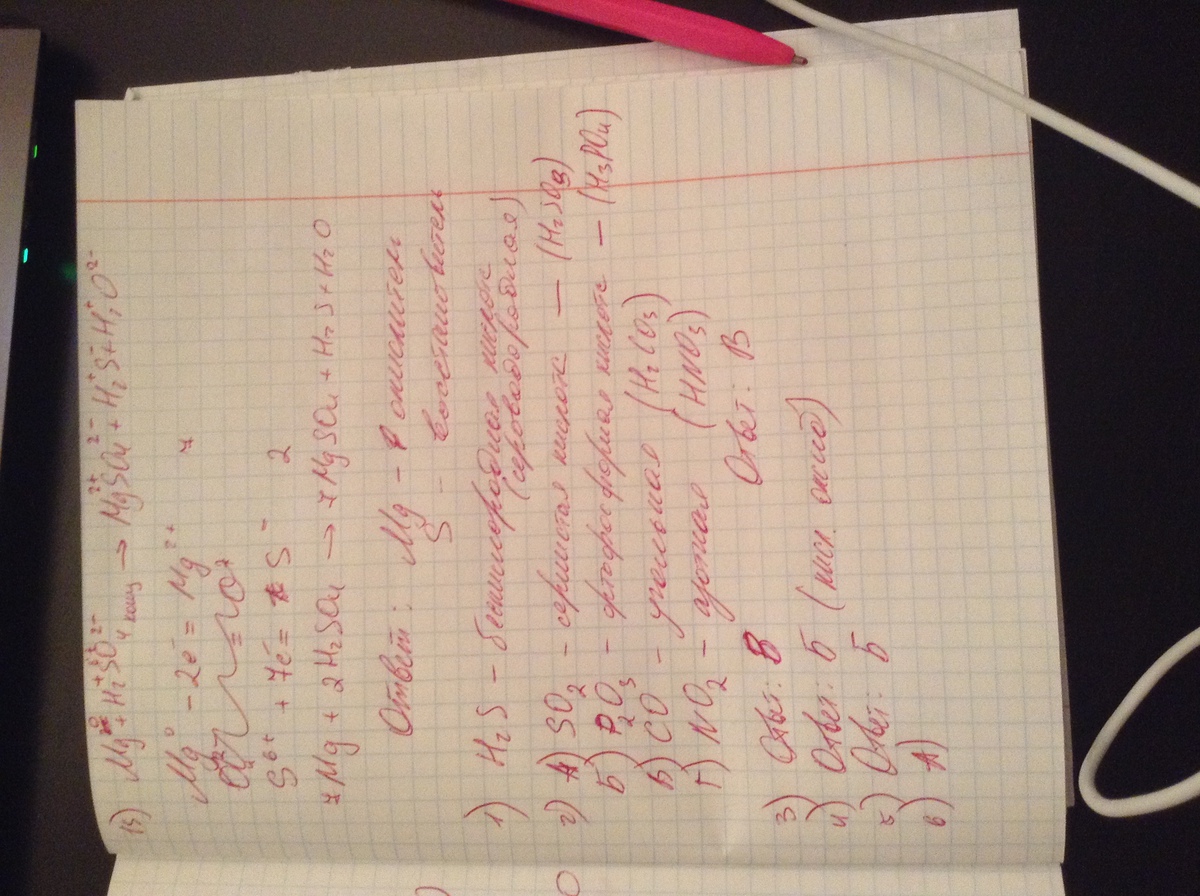 13) Mg⁰ + H₂⁺S⁶⁺O₄²⁻ конц → Mg²⁺SO₄²⁻ + H₂⁺S⁻ + H₂⁺O²⁻
Mg⁰ - 2e = Mg²⁺ 7
S⁶⁺ + 7e = S⁻ 2
7Mg + 2H₂SO₄ → 7MgSO₄ + H₂S + H₂O
Ответ: Mg - окислитель
S - восстановитель
1) H₂S - бескислородная кислота
(сероводородная)
2) А) SO₂ - сернистая кислота — (H₂SO₃)
Б) P₂O₃ - ортофосфорная кислота — (H₃PO₄)
В) CO - угольная (H₂CO₃)
Г) NO₂ - азотная (HNO₃)
Ответ: В
3) Ответ: В
4) Ответ: Б (кисл. оксид)
5) Ответ: Б
6) А)